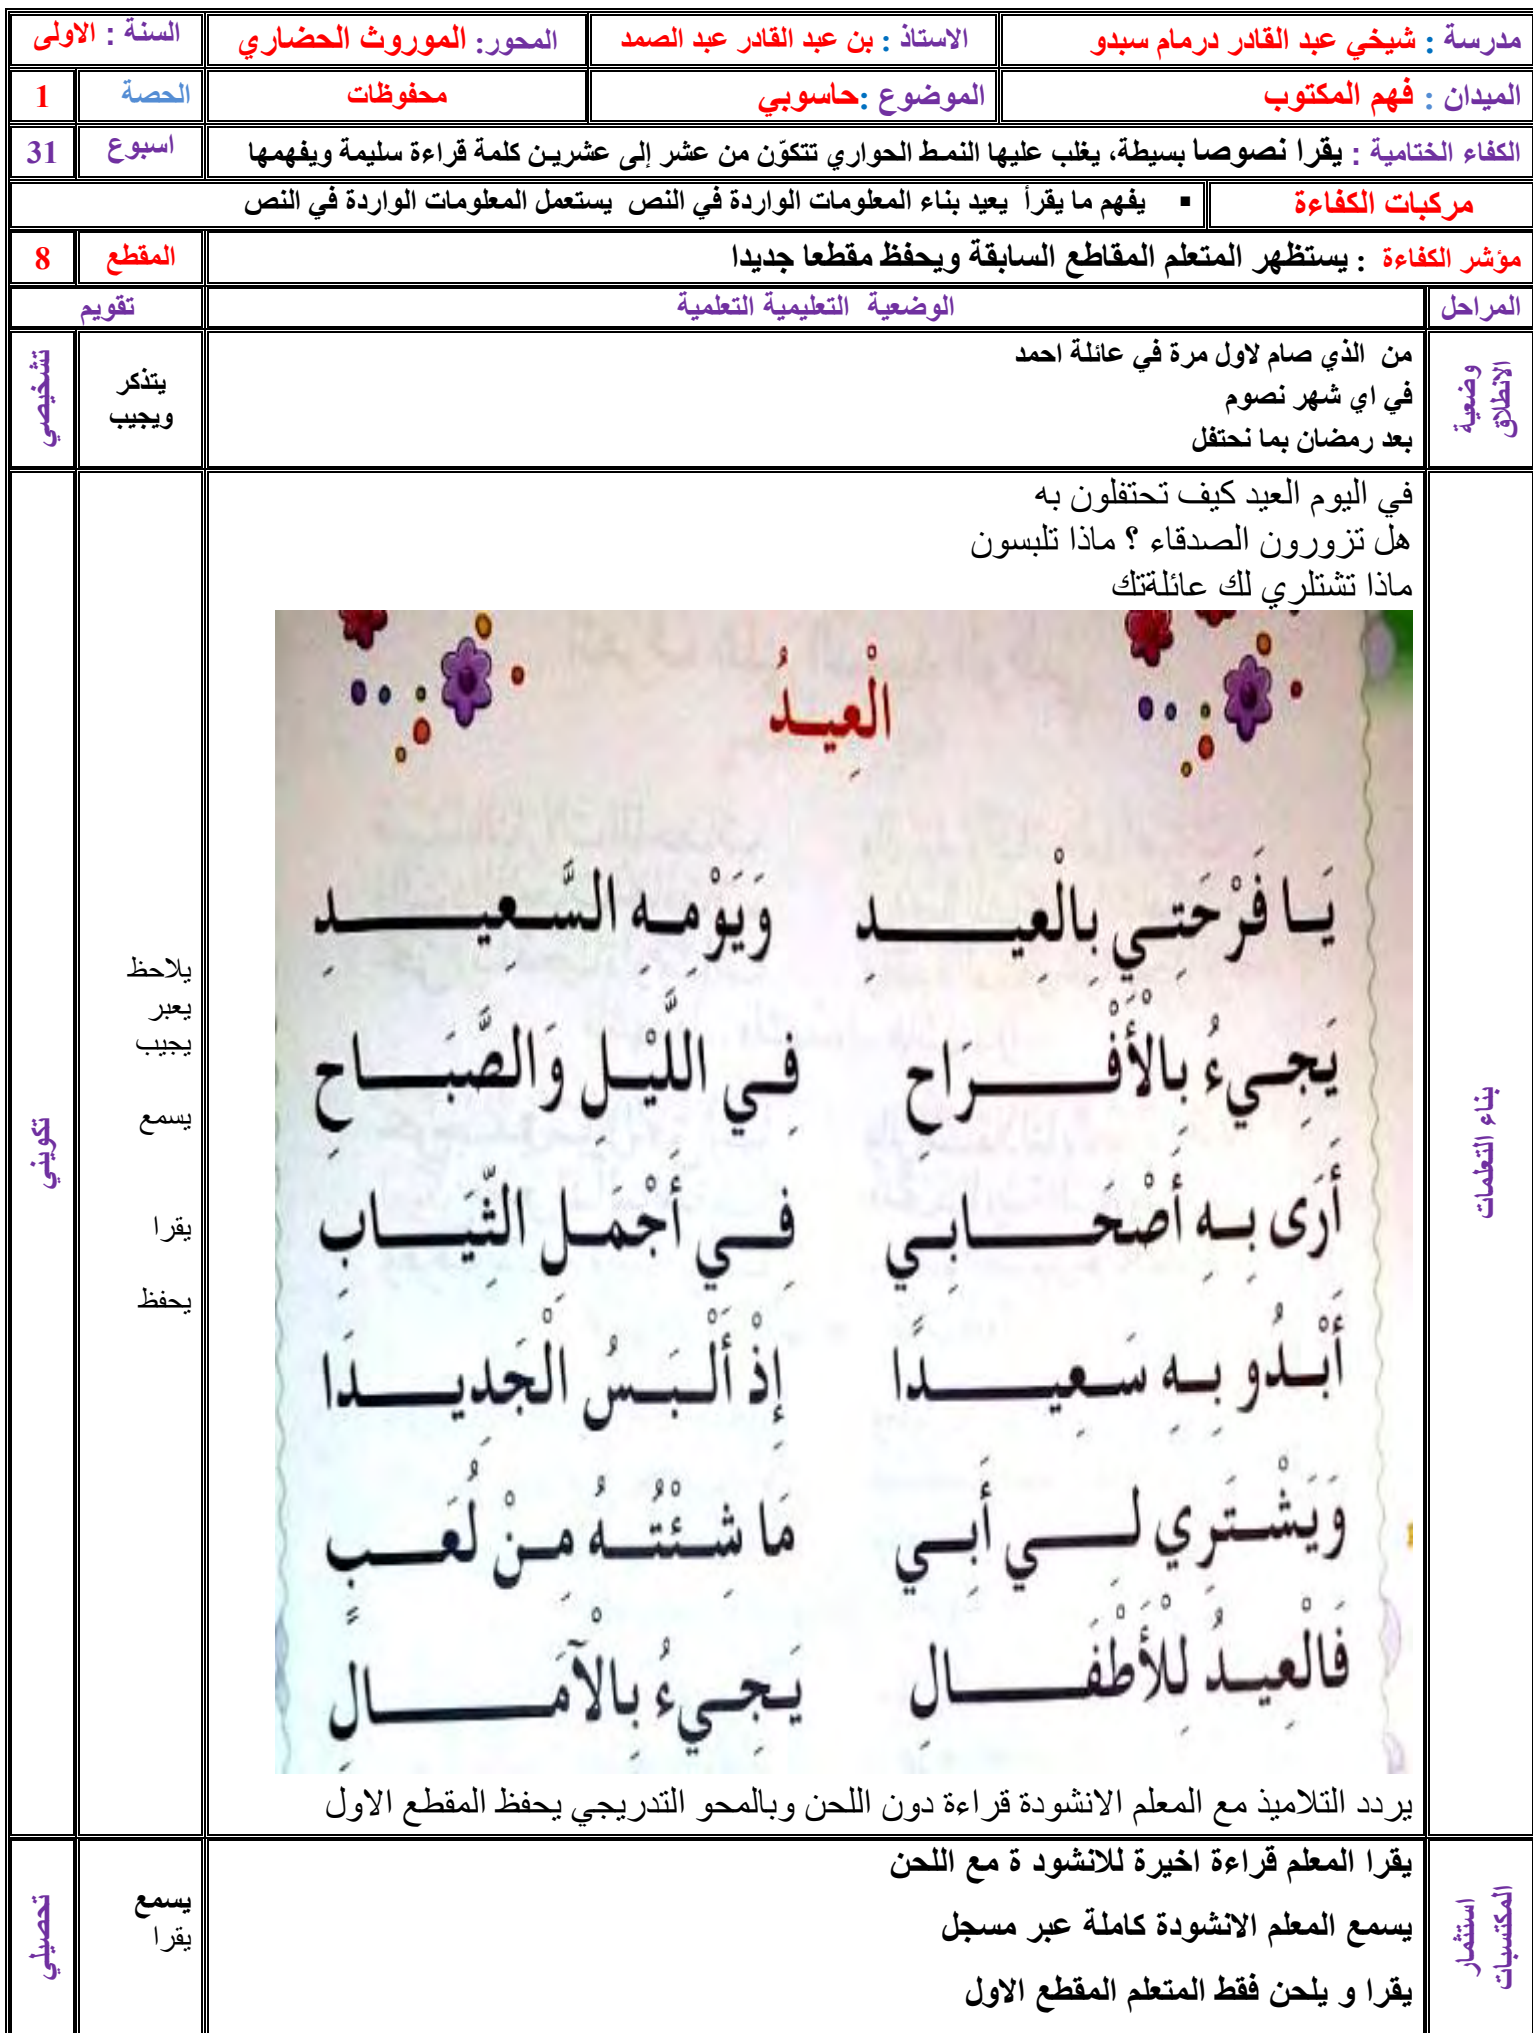 مدرسة : شيخي عبد القادر درمام سبدو الاستاذ : بن عبد القادر عبد الصمد المحور: الموروث الحضاري السنة : الاولى
الميدان : فهم المكتوب الموضوع :حاسوبي محفوظات الحصة 1
الكفاء الختامية : يقرا نصوصا بسيطة، يغلب عليها النمط الحواري تتكوّن من عشر إلى عشرين كلمة قراءة سليمة ويفهمها اسبوع 31
مركبات الكفاءة ▪ يفهم ما يقرأ يعيد بناء المعلومات الواردة في النص يستعمل المعلومات الواردة في النص
مؤشر الكفاءة : يستظهر المتعلم المقاطع السابقة ويحفظ مقطعا جديدا المقطع 8
المراحل الوضعية التعليمية التعلمية تقويم
وضعية
الانطلاق
من الذي صام لاول مرة في عائلة احمد
في اي شهر نصوم
بعد رمضان بما نحتفل
يتذكر
ويجيب
تشخيصي
بناء التعلمات
في اليوم العيد كيف تحتفلون به
هل تزورون الصدقاء ؟ ماذا تلبسون
ماذا تشتلري لك عائلةتك
الْعِيدُ
يَا فَرْحَتِي بِالْعِيدِ وَيَوْمِهِ السَّعِيدِ
يَجِيءُ بِالْأَفْرَاحِ فِي اللَّيْلِ وَالصَّبَاحِ
أَرَى بِهِ أَصْحَابِي فِي أَجْمَلِ الثِّيَابِ
أَبْدُو بِهِ سَعِيدًا إِذْ أَلْبَسُ الْجَدِيدَا
وَيَشْتَرِي لِي أَبِي مَا شِئْتُهُ مِنْ لُعَبٍ
فَالْعِيدُ لِلْأَطْفَالِ يَجِيءُ بِالْآمَالِ
يردد التلاميذ مع المعلم الانشودة قراءة دون اللحن وبالمحو التدريجي يحفظ المقطع الاول
يلاحظ
يعبر
يجيب
يسمع
يقرا
يحفظ
تكويني
استثمار
المكتسبات
يقرا المعلم قراءة اخيرة للانشود ة مع اللحن
يسمع المعلم الانشودة كاملة عبر مسجل
يقرا و يلحن فقط المتعلم المقطع الاول
يسمع
يقرا
تحصيلي